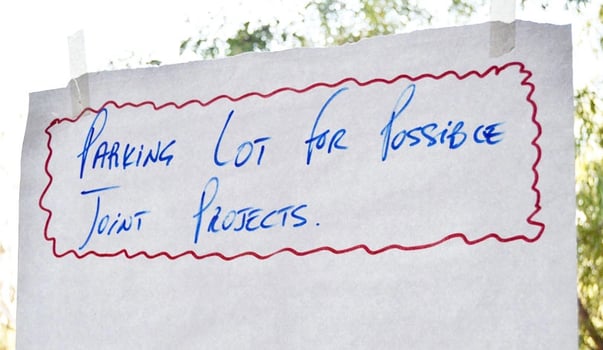 PARKING LOT FOR POSSIBLE
JOINT PROJECTS.